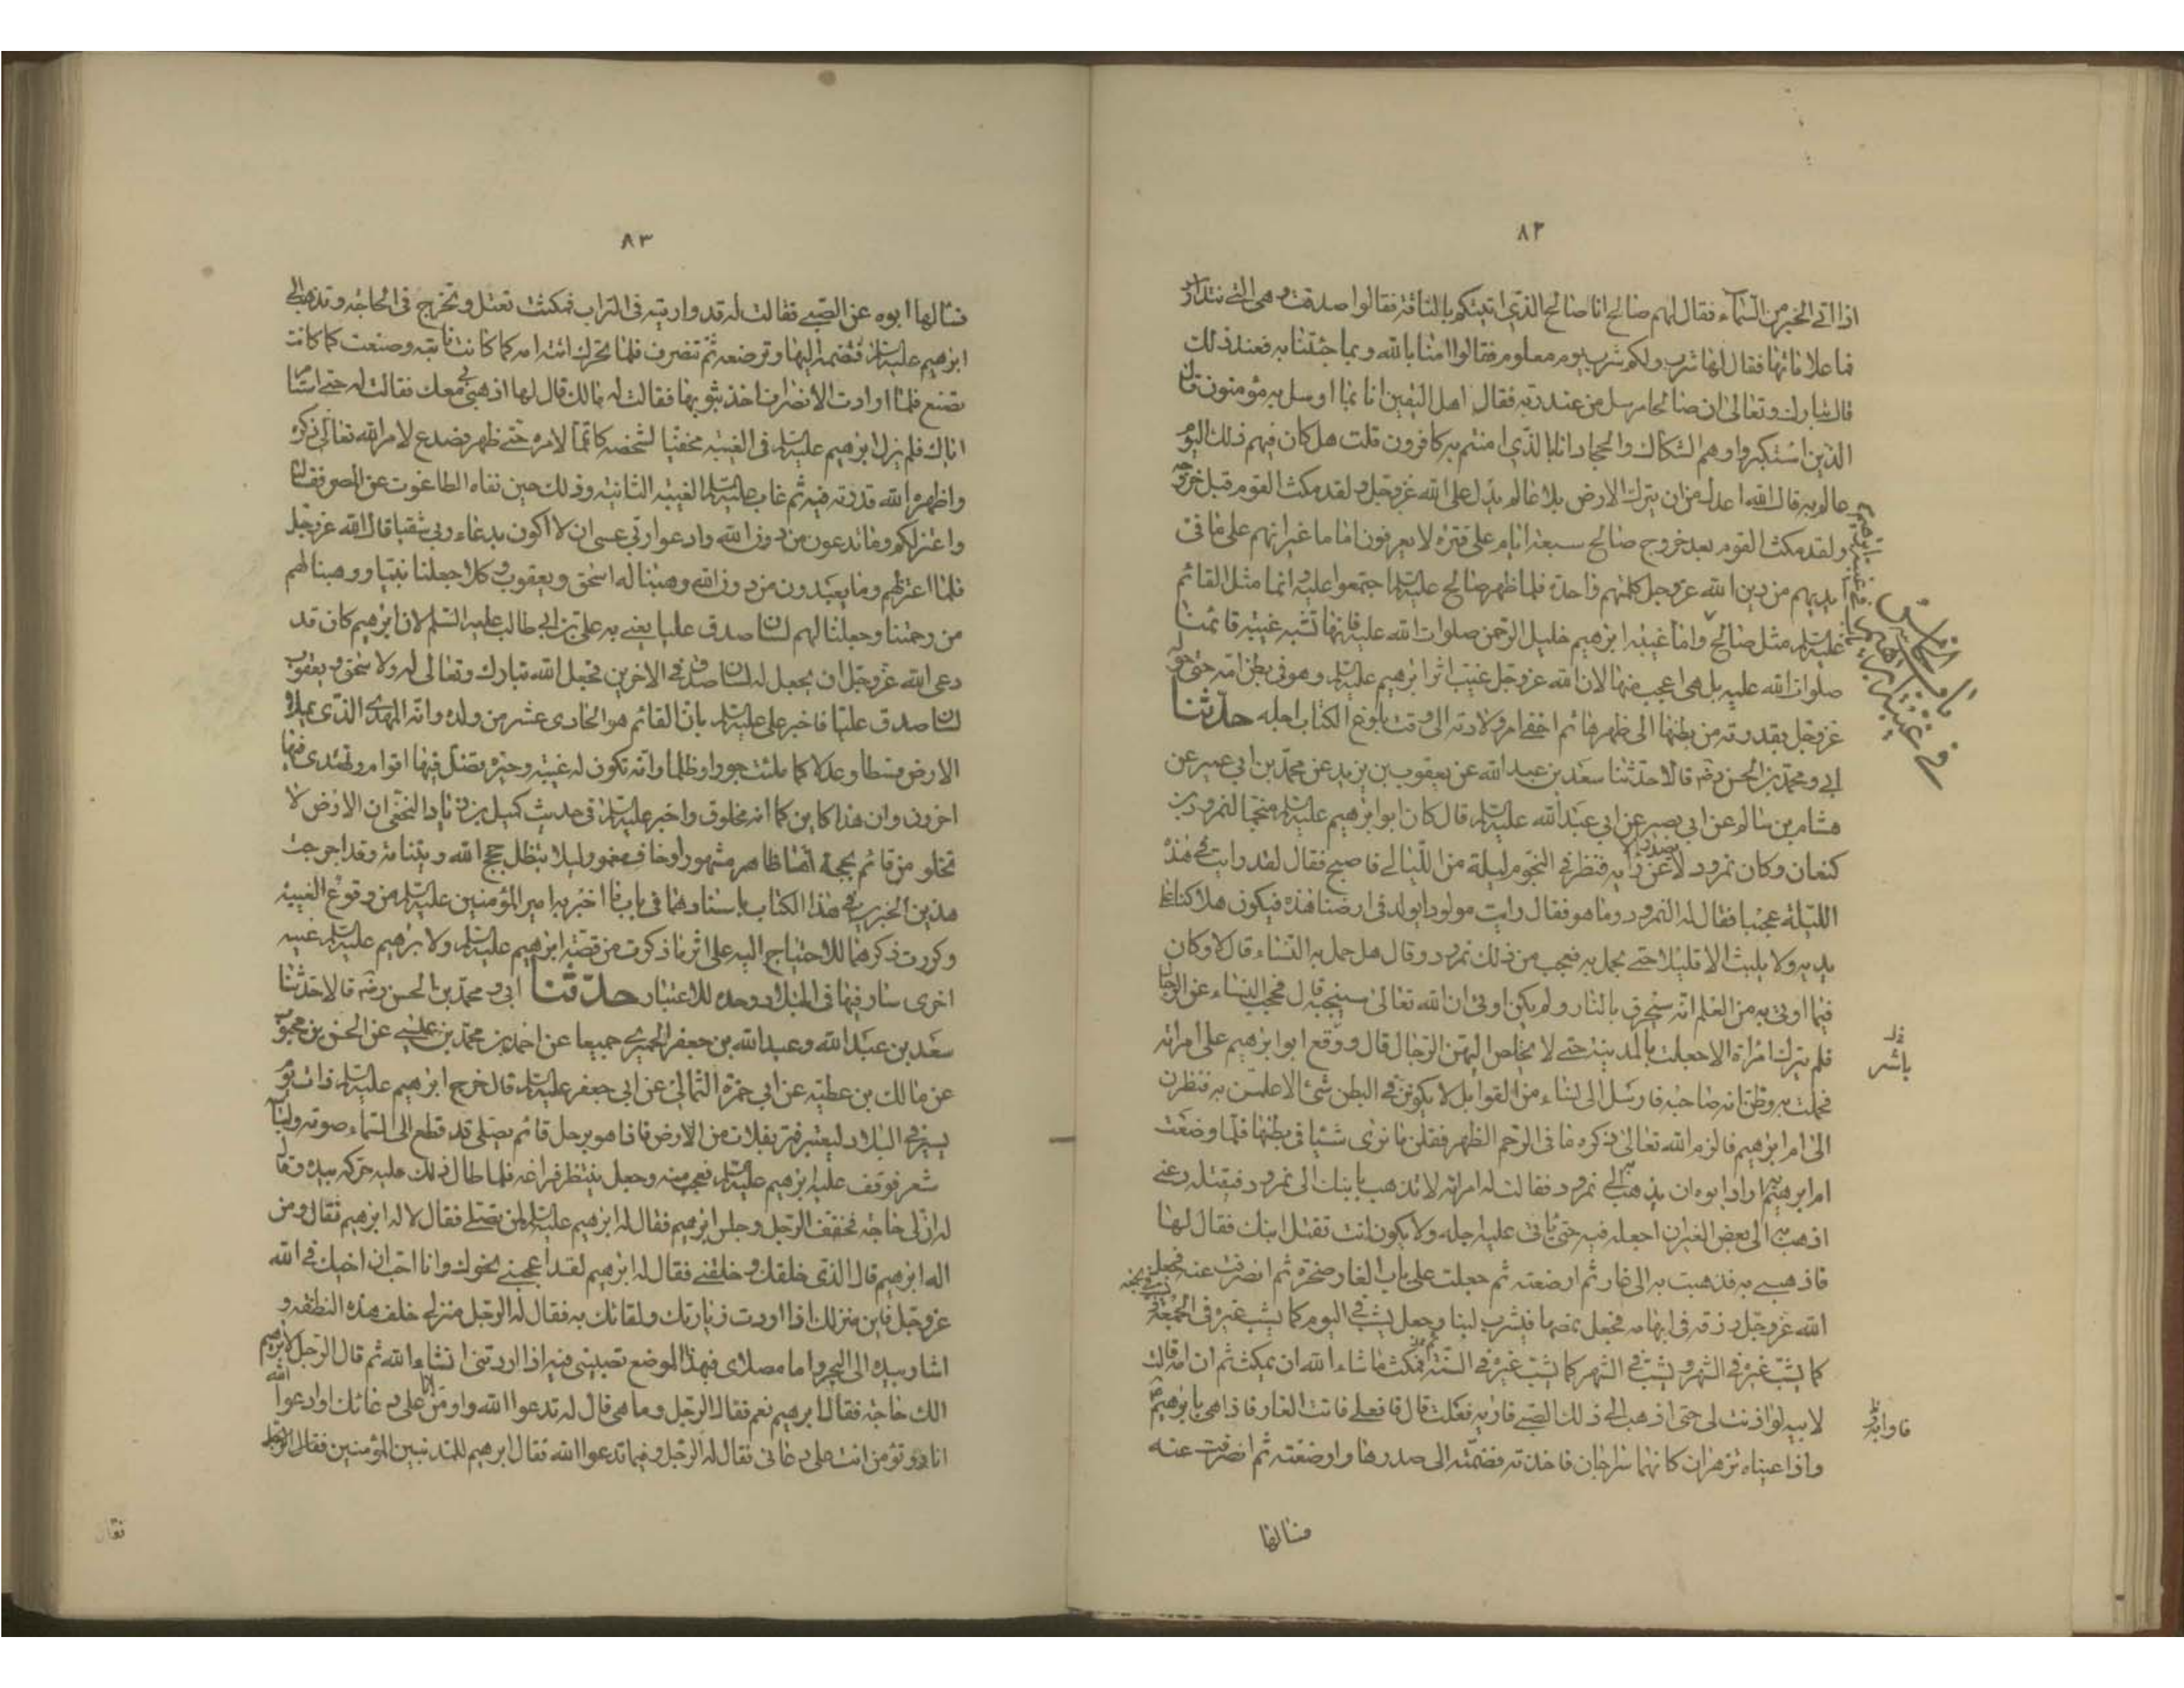 ٨٢
اذا اتى الخبر من السماء فقال لهم صالح انا صالح الذى اتيتكم بالناقة فقالوا صدقت وهى التى نتدارس
فما علاماتها فقال لها شرب ولكم شرب يوم معلوم فقالوا امنا بالله وبما جئتنا به فعند ذلك
قال تبارك وتعالى ان صالحا مرسل من عند ربه فقال اهل اليقين انا بما ارسل به مؤمنون قال
الذين استكبروا وهم الشكاك والجحاد انا بالذى امنتم به كافرون قلت هل كان فيهم ذلك اليوم
عالم به قال الله اعدل من ان يترك الارض بلا عالم يدل على الله عز وجل ولقد مكث القوم قبل خروجه
ولقد مكث القوم بعد خروج صالح سبعة ايام على فترة لا يعرفون اماما غير انهم على ما فى
ايديهم من دين الله عز وجل كلمتهم واحدة فلما ظهر صالح عليه السلم اجتمعوا عليه وانما مثل القائم
عليه السلم مثل صالح واما غيبة ابرهيم خليل الرحمن صلوات الله عليه فانها تشبه غيبة قائمنا
صلوات الله عليه بل هى اعجب منها لان الله عز وجل غيب اثر ابرهيم عليه السلم وهو فى بطن امه حتى حوله
عز وجل بقدرته من بطنها الى ظهرها ثم اخفى امر ولادته الى وقت بلوغ الكتاب اجله حدثنا
ابى ومحمد بن الحسن رضه قالا حدثنا سعد بن عبد الله عن يعقوب بن يزيد عن محمد بن ابى عمير عن
هشام بن سالم عن ابى بصير عن ابى عبد الله عليه السلم قال كان ابو ابرهيم عليه السلم منجما لنمرود بن
كنعان وكان نمرود لا يصدر الا عن رأيه فنظر فى النجوم ليلة من الليالى فاصبح فقال لقد رايت فى هذه
الليلة عجبا فقال له النمرود وما هو فقال رايت مولودا يولد فى ارضنا هذه فيكون هلاكنا على
يديه ولا يلبث الا قليلا حتى يحمل به فعجب من ذلك نمرود وقال هل حمل به النساء قال لا وكان
فيما اوتى به من العلم انه سيحرق بالنار ولم يكن اوتى ان الله تعالى سينجيه قال فحجب النساء عن الرجال
فلم يترك امراة الا جعلت بالمدينة حتى لا يخلص اليهن الرجال قال ووقع ابو ابرهيم على امراته
فحملت به وظن انه صاحبه فارسل الى نساء من القوابل لا يكون فى البطن شئ الا علمن به فنظرن
الى ام ابرهيم فالزم الله تعالى ذكره ما فى الرحم الظهر فقلن ما نرى شيئا فى بطنها فلما وضعت
ام ابرهيم اراد ابوه ان يذهب به الى نمرود فقالت له امراته لا تذهب بابنك الى نمرود فيقتله دعنى
اذهب به الى بعض الغيران اجعله فيه حتى ياتى عليه اجله ولا يكون انت تقتل ابنك فقال لها
فاذهبى به فذهبت به الى غار ثم ارضعته ثم جعلت على باب الغار صخرة ثم انصرفت عنه فجعل
الله عز وجل رزقه فى ابهامه فجعل يمصها فيشرب لبنا وجعل يشب فى اليوم كما يشب غيره فى الجمعة
كما يشب غيره فى الشهر ويشب فى الشهر كما يشب غيره فى السنة فمكث ما شاء الله ان يمكث ثم ان امه قالت
لابيه لو اذنت لى حتى اذهب الى ذلك الصبى فاراه فعلت قال فافعلى فاتت الغار فاذا هى بابرهيم
واذا عيناه تزهران كانهما سراجان فاخذته فضمته الى صدرها وارضعته ثم انصرفت عنه
فسالها
باب الخامس
فى غيبة ابرهيم
باشر
٨٣
فسالها ابوه عن الصبى فقالت له قد واريته فى التراب فمكثت تعتل وتخرج فى الحاجة وتذهب الى
ابرهيم عليه السلم فتضمه اليها وترضعه ثم تنصرف فلما تحرك اتته امه كما كانت تاتيه وصنعت كما كانت
تصنع فلما ارادت الانصراف اخذ بثوبها فقالت له مالك قال لها اذهبى بى معك فقالت له حتى استامر
اباك فلم يزل ابرهيم عليه السلم فى الغيبة مخفيا لشخصه كاتما لامره حتى ظهر فصدع لامر الله تعالى ذكره
واظهر الله قدرته فيه ثم غاب عليه السلم الغيبة الثانية وذلك حين نفاه الطاغوت عن المصر فقال
واعتزلكم وما تدعون من دون الله وادعو ربى عسى ان لا اكون بدعاء ربى شقيا قال الله عز وجل
فلما اعتزلهم وما يعبدون من دون الله وهبنا له اسحق ويعقوب وكلا جعلنا نبيا ووهبنا لهم
من رحمتنا وجعلنا لهم لسان صدق عليا يعنى به على بن ابى طالب عليه السلم لان ابرهيم كان قد
دعى الله عز وجل ان يجعل له لسان صدق فى الاخرين فجعل الله تبارك وتعالى له ولاسحق ويعقوب
لسان صدق عليا فاخبر على عليه السلم بان القائم هو الحادى عشر من ولده وانه المهدى الذى يملا
الارض قسطا وعدلا كما ملئت جورا وظلما وانه تكون له غيبة وحيرة يضل فيها اقوام ويهتدى فيها
اخرون وان هذا كاين كما انه مخلوق واخبر عليه السلم فى حديث كميل بن زياد النخعى ان الارض لا
تخلو من قائم بحجة اما ظاهر مشهور او خاف مغمور لئلا تبطل حجج الله وبيناته وقد اخرجت
هذين الخبرين فى هذا الكتاب باسنادهما فى باب ما اخبر به امير المؤمنين عليه السلم من وقوع الغيبة
وكررت ذكرهما للاحتياج اليه على اثر ما ذكرت من قصة ابرهيم عليه السلم ولابرهيم عليه السلم غيبة
اخرى سار فيها فى البلاد وحده للاعتبار حدثنا ابى ومحمد بن الحسن رضه قالا حدثنا
سعد بن عبد الله وعبد الله بن جعفر الحميرى جميعا عن احمد بن محمد بن عيسى عن الحسن بن محبوب
عن مالك بن عطية عن ابى حمزة الثمالى عن ابى جعفر عليه السلم قال خرج ابرهيم عليه السلم ذات يوم
يسير فى البلاد ليعتبر فمر بفلاة من الارض فاذا هو برجل قائم يصلى قد قطع الى السماء صوته ولباسه
شعر فوقف عليه ابرهيم عليه السلم فعجب منه وجعل ينتظر فراغه فلما طال ذلك عليه حركه بيده وقال
له ان لى حاجة فخفف الرجل وجلس ابرهيم فقال له ابرهيم عليه السلم لمن تصلى فقال لاله ابرهيم فقال ومن
اله ابرهيم قال الذى خلقك وخلقنى فقال له ابرهيم لقد اعجبنى نحوك وانا احب ان اخيك فى الله
عز وجل فاين منزلك اذا اردت زيارتك ولقائك به فقال له الرجل منزلى خلف هذه النطفة و
اشار بيده الى البحر واما مصلاى فهذا الموضع تصيبنى فيه اذا اردتنى ان شاء الله ثم قال الرجل لابرهيم
الك حاجة فقال ابرهيم نعم فقال الرجل وما هى قال له تدعوا الله واومن انا على دعائك او ادعوا الله
انا وتؤمن انت على دعائى فقال له الرجل وفيما تدعوا الله فقال ابرهيم للمذنبين المؤمنين فقال الرجل
فقال